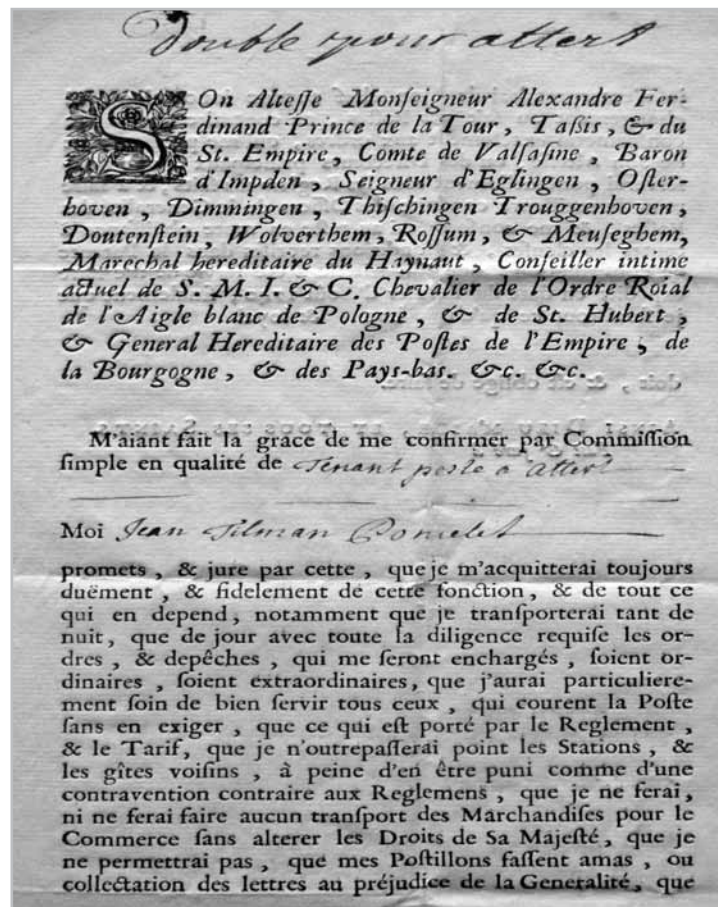 Double pour attert
SOn Alteſſe Monſeigneur Alexandre Fer-
dinand Prince de la Tour, Taßis, & du
St. Empire, Comte de Valſaſine, Baron
d'Impden, Seigneur d'Eglingen, Oſter-
hoven, Dimmingen, Thiſchingen Trouggenhoven,
Doutenſtein, Wolverthem, Roſſum, & Meuſeghem,
Marechal hereditaire du Haynaut, Conſeiller intime
actuel de S. M. I. & C. Chevalier de l'Ordre Roial
de l'Aigle blanc de Pologne, & de St. Hubert,
& General Hereditaire des Poſtes de l'Empire, de
la Bourgogne, & des Pays-bas. &c. &c.
M'aiant fait la grace de me confirmer par Commiſſion
ſimple en qualité de Tenant poste a attert
Moi Jean Tilman
promets, & jure par cette, que je m'acquitterai toujours
duëment, & fidelement de cette fonction, & de tout ce
qui en depend, notamment que je tranſporterai tant de
nuit, que de jour avec toute la diligence requiſe les or-
dres, & depêches, qui me ſeront enchargés, ſoient or-
dinaires, ſoient extraordinaires, que j'aurai particuliere-
ment ſoin de bien ſervir tous ceux, qui courent la Poſte
ſans en exiger, que ce qui eſt porté par le Reglement,
& le Tarif, que je n'outrepaſſerai point les Stations, &
les gîtes voiſins, à peine d'en être puni comme d'une
contravention contraire aux Reglemens, que je ne ferai,
ni ne ferai faire aucun tranſport des Marchandiſes pour le
Commerce ſans alterer les Droits de Sa Majeſté, que je
ne permettrai pas, que mes Poſtillons faſſent amas, ou
collectation des lettres au préjudice de la Generalité, que